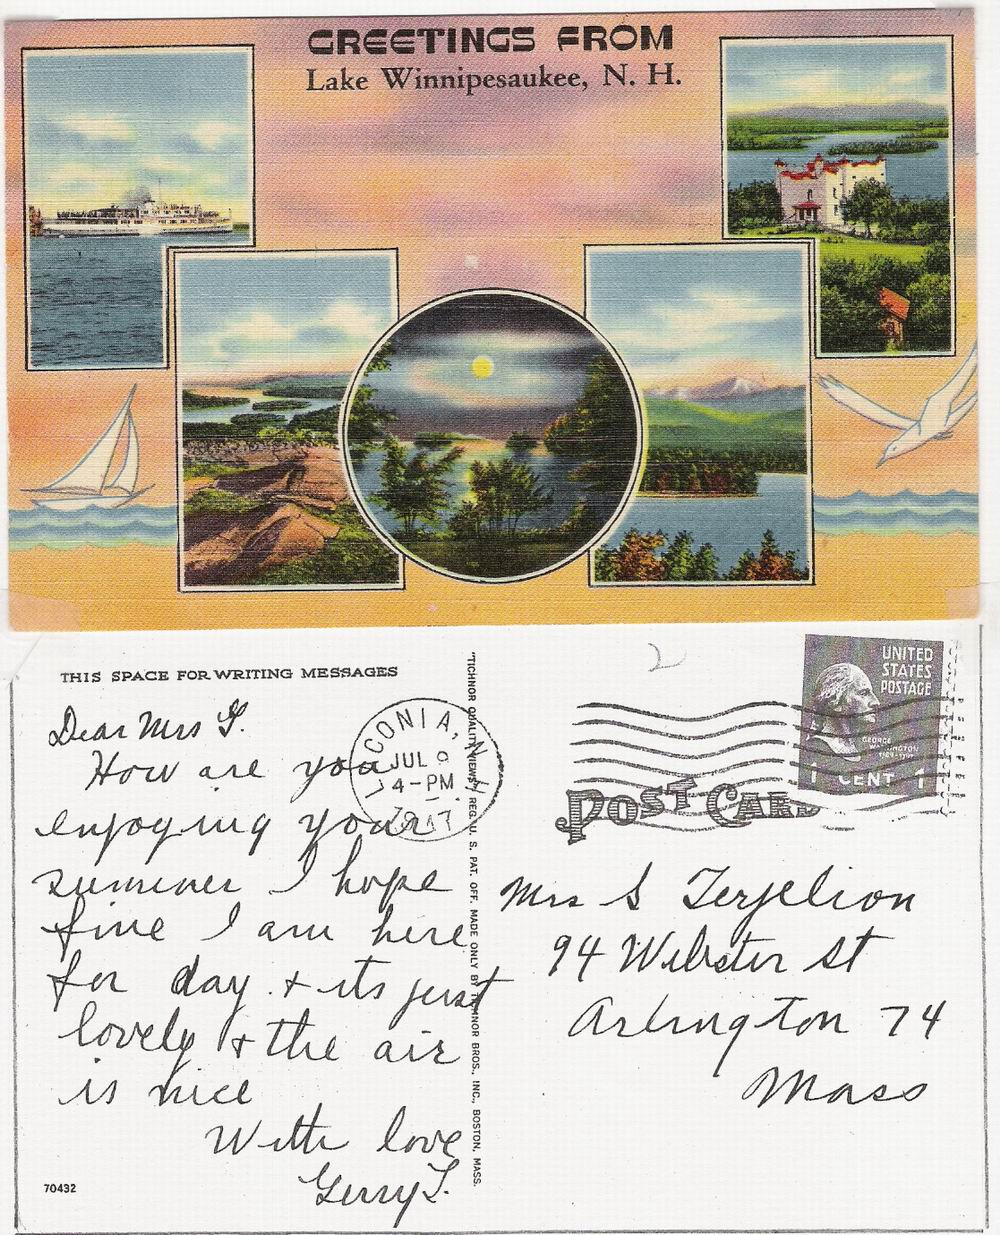 GREETINGS FROM
Lake Winnipesaukee, N. H.
THIS SPACE FOR WRITING MESSAGES
Dear Mrs T.
How are you
enjoying your
summer I hope
fine I am here
for day + its just
lovely + the air
is nice
With love
Gerry T.
70432
"TICHNOR QUALITY VIEWS," REG. U. S. PAT. OFF. MADE ONLY BY TICHNOR BROS., INC., BOSTON, MASS.
LACONIA, N.H.
JUL 9
4-PM
1947
2
UNITED
STATES
POSTAGE
GEORGE
WASHINGTON
1 CENT 1
POST CARD
Mrs S Terjelion
94 Webster St
Arlington 74
Mass